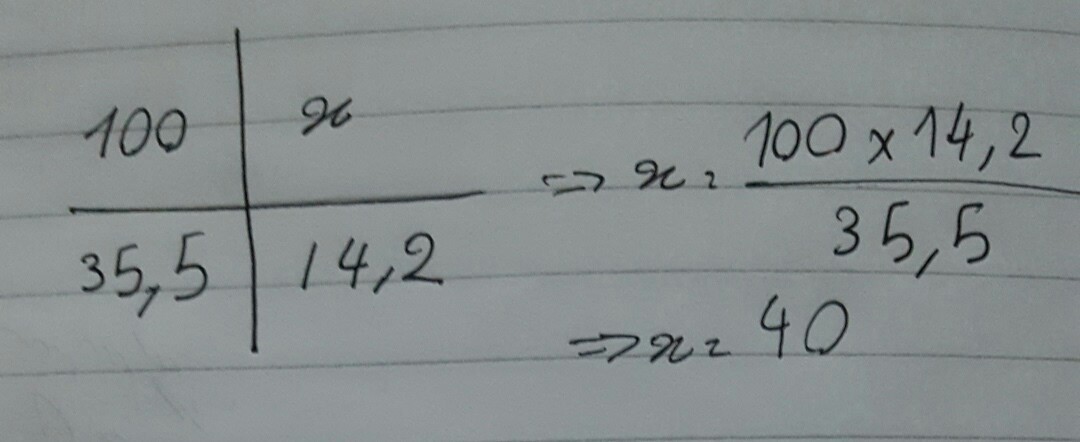 100 | x
35,5 | 14,2
=> x = 100 x 14,2 / 35,5
=> x = 40